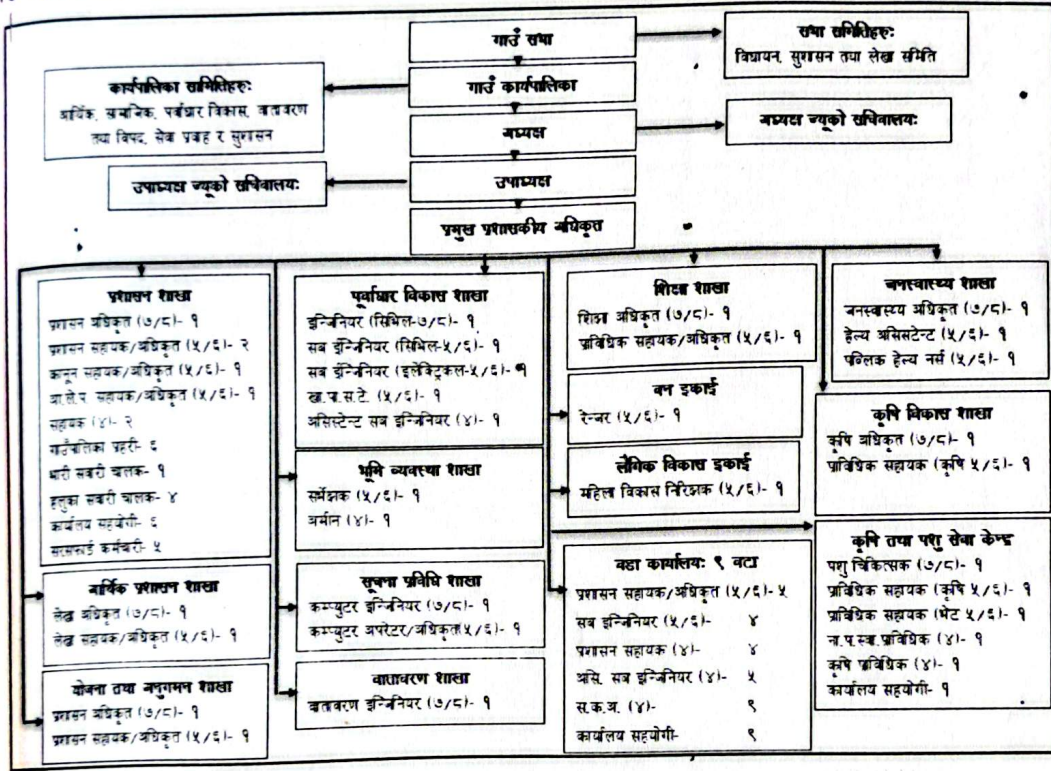 गाउँ सभा
सभा समितिहरुः
विधायन, सुशासन तथा लेखा समिति
कार्यपालिका समितिहरुः
आर्थिक, सामाजिक, पर्वाधार विकास, वातावरण
तथा विपद, सेवा प्रवाह र सुशासन
गाउँ कार्यपालिका
अध्यक्ष
अध्यक्ष ज्यूको सचिवालयः
उपाध्यक्ष ज्यूको सचिवालयः
उपाध्यक्ष
प्रमुख प्रशासकीय अधिकृत
प्रशासन शाखा
प्रशासन अधिकृत (७/८)- १
प्रशासन सहायक/अधिकृत (५/६)- २
कानून सहायक/अधिकृत (५/६)- १
आ.ले.प. सहायक/अधिकृत (५/६)- १
सहायक (४)- २
गाउँपालिका प्रहरी- ६
भारी सवारी चालक- १
हलुका सवारी चालक- ४
कार्यालय सहयोगी- ६
सरसफाई कर्मचारी- ५
आर्थिक प्रशासन शाखा
लेखा अधिकृत (७/८)- १
लेखा सहायक/अधिकृत (५/६)- १
योजना तथा अनुगमन शाखा
प्रशासन अधिकृत (७/८)- १
प्रशासन सहायक/अधिकृत (५/६)- १
पूर्वाधार विकास शाखा
इन्जिनियर (सिभिल-७/८)- १
सब इन्जिनियर (सिभिल-५/६)- १
सब इन्जिनियर (इलेक्ट्रिकल-५/६)- १
खा.पा.स.टे. (५/६)- १
असिस्टेन्ट सब इन्जिनियर (४)- १
भूमि व्यवस्था शाखा
सर्भेक्षक (५/६)- १
अमीन (४)- १
सूचना प्रविधि शाखा
कम्प्युटर इन्जिनियर (७/८)- १
कम्प्युटर अपरेटर/अधिकृत(५/६)- १
वातावरण शाखा
वातावरण इन्जिनियर (७/८)- १
शिक्षा शाखा
शिक्षा अधिकृत (७/८)- १
प्राविधिक सहायक/अधिकृत (५/६)- १
वन इकाई
रेन्जर (५/६)- १
लैंगिक विकास इकाई
महिला विकास निरिक्षक (५/६)- १
वडा कार्यालयः ९ वटा
प्रशासन सहायक/अधिकृत (५/६)- ५
सब इन्जिनियर (५/६)- ४
प्रशासन सहायक (४)- ४
असि. सब इन्जिनियर (४)- ५
स.क.अ. (४)- ९
कार्यालय सहयोगी- ९
जनस्वास्थ्य शाखा
जनस्वास्थ्य अधिकृत (७/८)- १
हेल्थ असिसटेन्ट (५/६)- १
पब्लिक हेल्थ नर्स (५/६)- १
कृषि विकास शाखा
कृषि अधिकृत (७/८)- १
प्राविधिक सहायक (कृषि ५/६)- १
कृषि तथा पशु सेवा केन्द्र
पशु चिकित्सक (७/८)- १
प्राविधिक सहायक (कृषि ५/६)- १
प्राविधिक सहायक (भेट ५/६)- १
ना.प.स्वा.प्राविधिक (४)- १
कृषि प्राविधिक (४)- १
कार्यालय सहयोगी- १